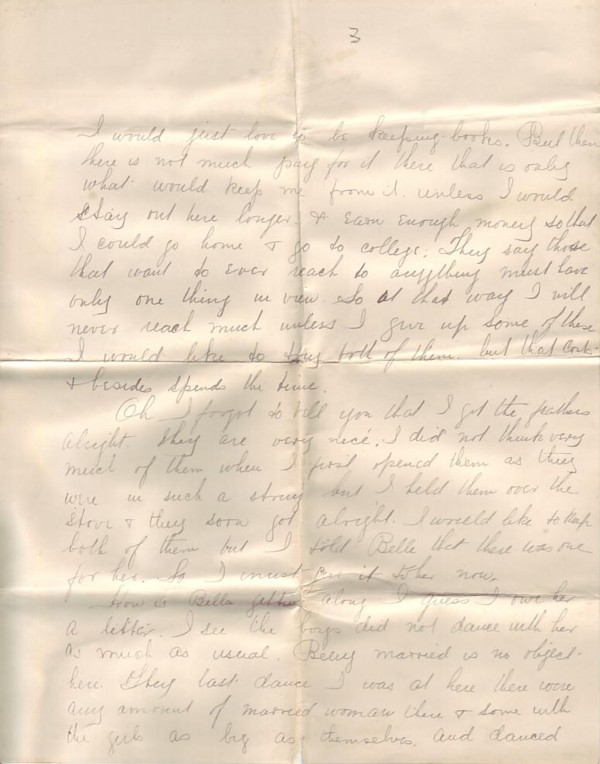 3
I would just love to be keeping books. But then
there is not much pay for it here that is only
what would keep me from it. unless I would
stay out here longer. & earn enough money so that
I could go home & go to college. They say those
that want to ever reach to anything must have
only one thing in view. So at that way I will
never reach much unless I give up some of these
I would like to both of them. but that
& besides spends the time.
Oh I forgot to tell you that I got the feathers
alright they are very nice. I did not think very
much of them when I first opened them as they
were in such a string but I held them over the
stove & they soon got alright. I would like to keep
both of them but I told Bella that there was one
for her. So I must it to her now.
How is Bella along I guess I owe her
a letter. I see the boys did not dance with her
as much as usual. Being married is no object
here. They last dance I was at here there were
any amount of married woman there & some with
the girls as big as themselves. and danced